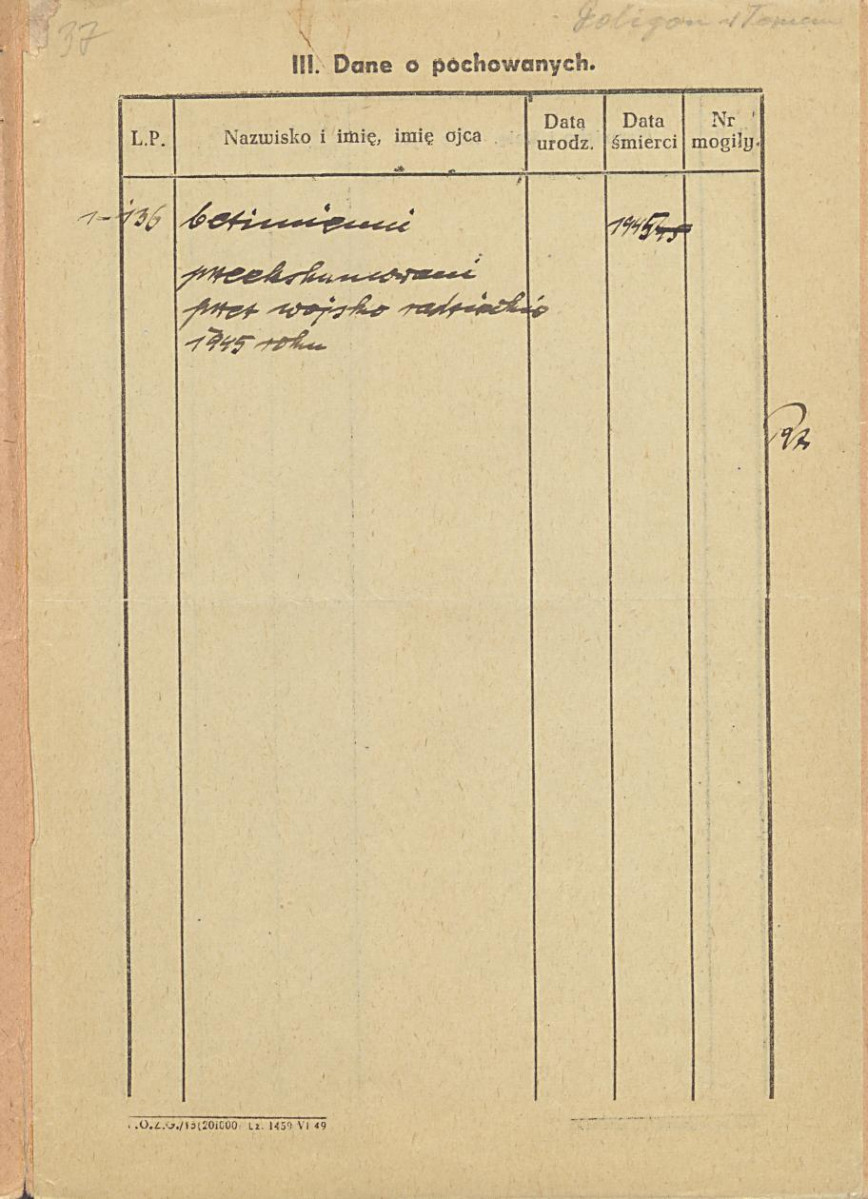 37
III. Dane o pochowanych.
L.P. Nazwisko i imię, imię ojca Data urodz. Data śmierci Nr mogiły.
1-136 bezimienni 1945
przekshumowani
przez wojsko radzieckie
1945 roku
.O.Z.G./15(201000 Lz. 1459 VI 49